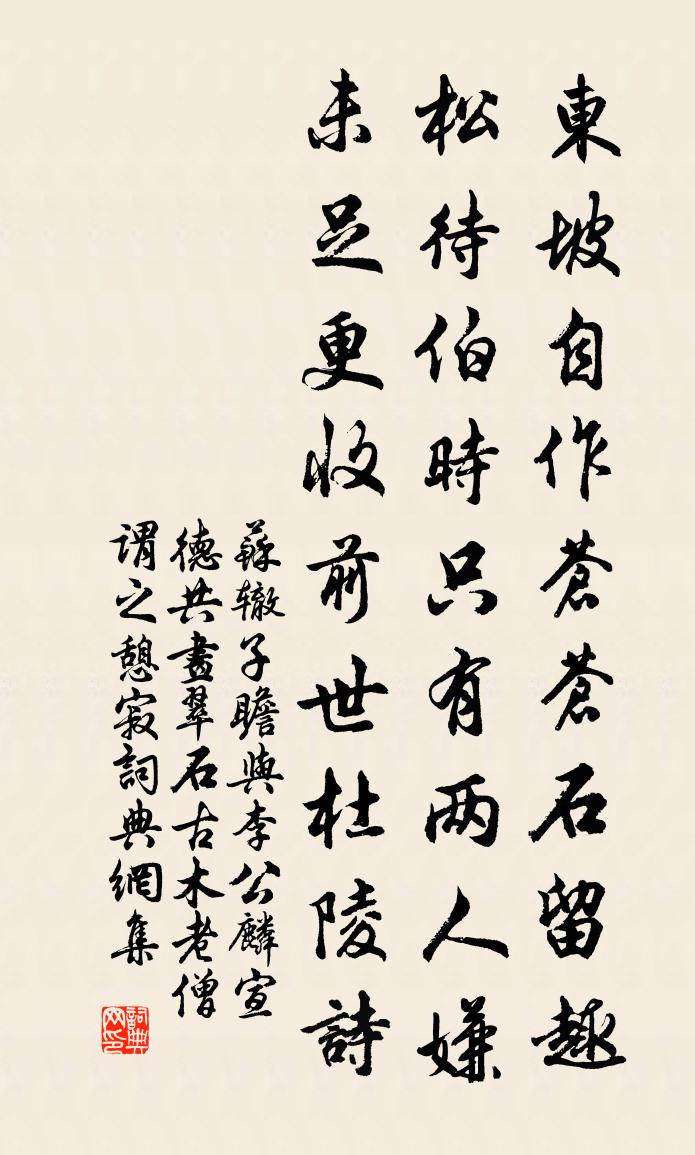 東坡自作蒼蒼石留趣
松待伯時只有两人嫌
未足更收前世杜陵詩
蘇辙子瞻與李公麟宣
德共畫翠石古木老僧
謂之憩寂詞典網集
詞典网印